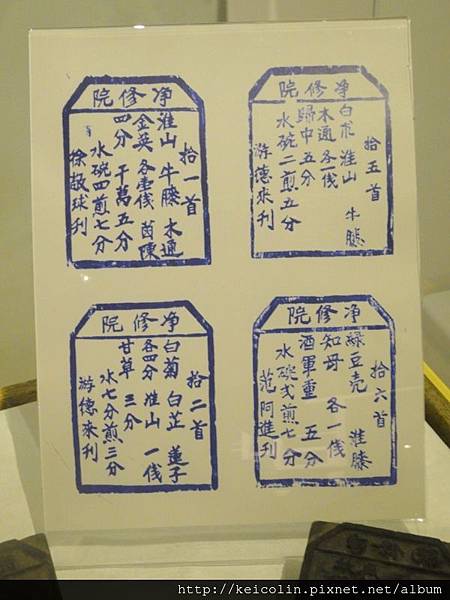 院修淨
拾一首
淮山 牛膝 木通
金英 各壹錢 茵陳
四分 千萬五分
水碗四煎七分
徐 球刋
院修淨
拾五首
白朮 淮山 牛膝
木通各一錢
歸中五分
水碗二煎五分
游德來刋
院修淨
拾二首
白菊 白芷 蓮子
各四分 淮山 一錢
甘草 三分
水七分煎三分
游德來刋
院修淨
拾六首
綠豆壳 淮膝
知母 各一錢
酒軍重 五分
水碗弍煎七分
范阿進刋
http://keicolin.pixnet.net/album